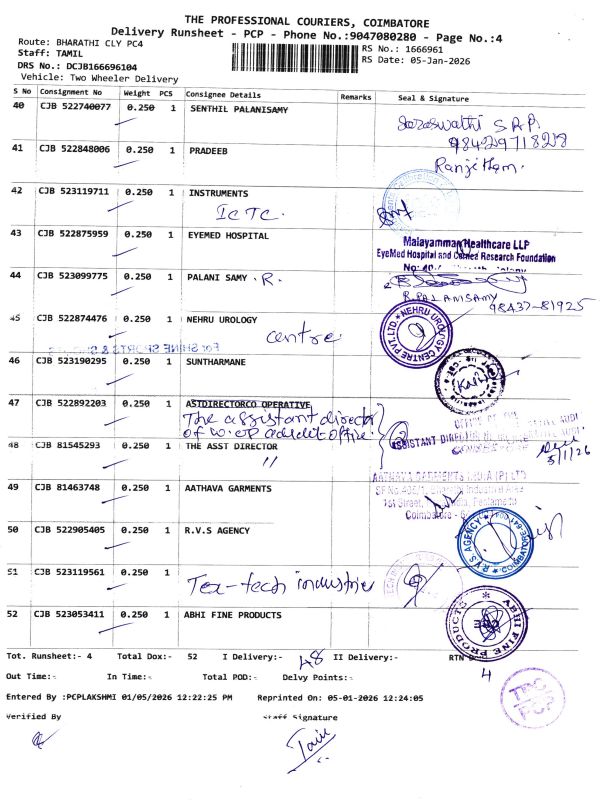 THE PROFESSIONAL COURIERS, COIMBATORE
Delivery Runsheet - PCP - Phone No.:9047080280 - Page No.:4
Route: BHARATHI CLY PC4
RS No.: 1666961
Staff: TAMIL
RS Date: 05-Jan-2026
DRS No.: DCJB166696104
Vehicle: Two Wheeler Delivery
S No Consignment No Weight PCS Consignee Details Remarks Seal & Signature
40 CJB 522740077 0.250 1 SENTHIL PALANISAMY
Saraswathi S.R.P.
9842971828
41 CJB 522848006 0.250 1 PRADEEB
Ranjitham.
42 CJB 523119711 0.250 1 INSTRUMENTS
ICTC.
43 CJB 522875959 0.250 1 EYEMED HOSPITAL
Malayamman Healthcare LLP
EyeMed Hospital and Research Foundation
44 CJB 523099775 0.250 1 PALANI SAMY . R.
R.PALANISAMY
98437-81925
45 CJB 522874476 0.250 1 NEHRU UROLOGY
centre
NEHRU UROLOGY CENTRE PVT. LTD.
For SHINE SPORTS &
46 CJB 523190295 0.250 1 SUNTHARMANE
47 CJB 522892203 0.250 1 ASTDIRECTORCO OPERATIVE
The assistant director
of co.op audit office
ASSISTANT DIRECTOR
5/1/26
48 CJB 81545293 0.250 1 THE ASST DIRECTOR
"
AATHAVA GARMENTS INDIA (P) LTD
49 CJB 81463748 0.250 1 AATHAVA GARMENTS
Industrial Area
1st Street,
Coimbatore - 6
50 CJB 522905405 0.250 1 R.V.S AGENCY
R.V.S AGENCY
COIMBATORE
51 CJB 523119561 0.250 1
Tex-tech industries
52 CJB 523053411 0.250 1 ABHI FINE PRODUCTS
ABHI FINE PRODUCTS
CBE
Tot. Runsheet:- 4 Total Dox:- 52 I Delivery:- 48 II Delivery:- RTN D
4
Out Time:- In Time:- Total POD:- Delvy Points:-
Entered By :PCPLAKSHMI 01/05/2026 12:22:25 PM Reprinted On: 05-01-2026 12:24:05
Verified By Staff Signature